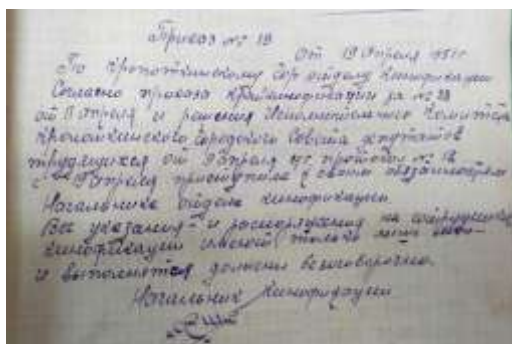 Приказ № 19
От 19 Апреля 51 г.
По Кропоткинскому Гор отделу Кинофикации
Согласно приказа Крайкинофикации за № 28
от 8 апреля и решения Исполнительного Комитета
Кропоткинского Городского Совета депутатов
трудящихся от 9 апреля протокол № 12
с 19 Апреля приступила к своим обязанностям
Начальника отдела кинофикации.
Все указания и распоряжения на
кинофикации только
и выполняться должны безоговорочно.
Начальник Кинофикации